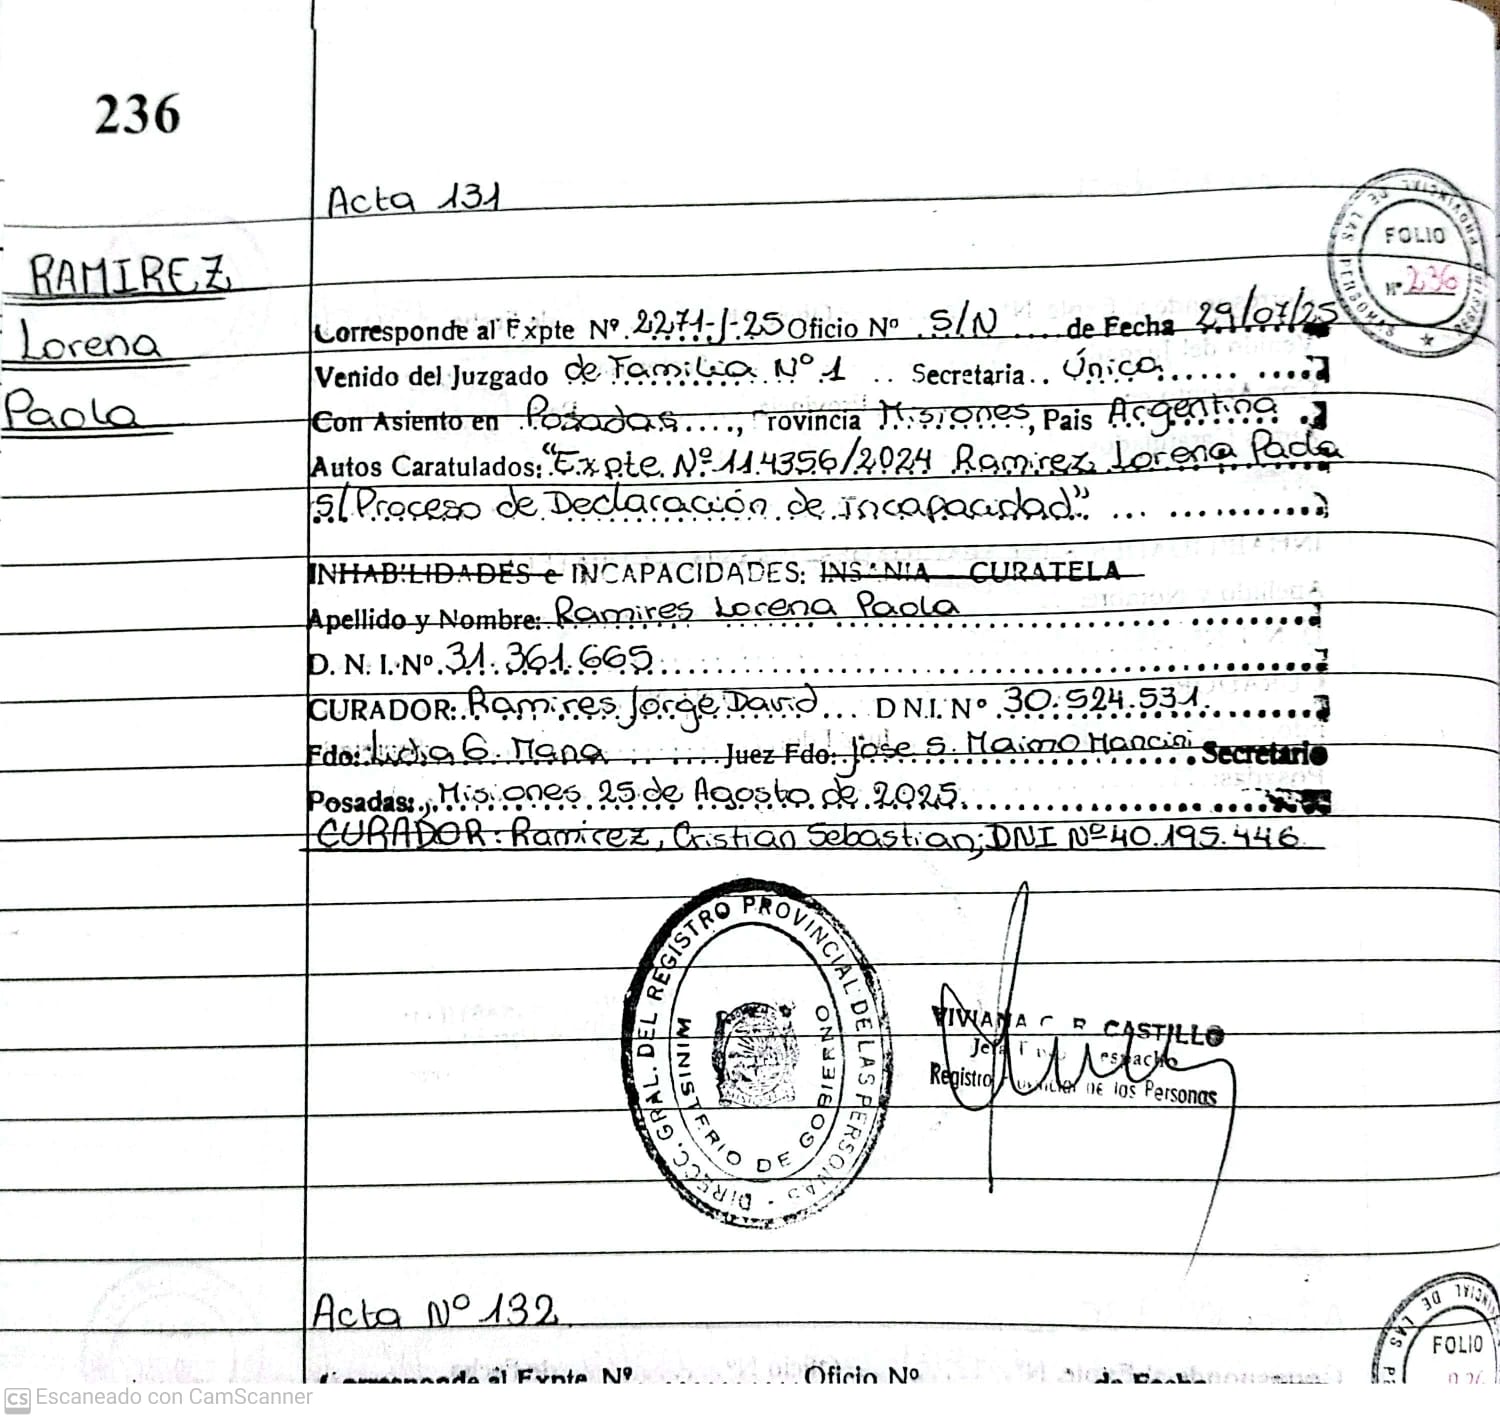 236
Acta 131
RAMIREZ
Lorena
Paola
FOLIO
Nº 236
Corresponde al Expte Nº 2271-J-25 Oficio Nº S/N de Fecha 29/07/25
Venido del Juzgado de Familia Nº 1 Secretaria Única
Con Asiento en Posadas, Provincia Misiones, Pais Argentina
Autos Caratulados: "Expte. Nº 114356/2024 Ramirez Lorena Paola
S/ Proceso de Declaración de Incapacidad"
INHABILIDADES e INCAPACIDADES: INSANIA - CURATELA
Apellido y Nombre: Ramires Lorena Paola
D. N. I. Nº 31.361.665
CURADOR: Ramires Jorge David D.N.I. Nº 30.524.531
Fdo: Lidia G. Juez Fdo: Jose S. Maimo Mancini Secretario
Posadas: Misiones 25 de Agosto de 2025.
CURADOR: Ramirez, Cristian Sebastian; DNI Nº 40.195.446
DIRECC. GRAL. DEL REGISTRO PROVINCIAL DE LAS PERSONAS
MINISTERIO DE GOBIERNO
VIVIANA CASTILLO
Registro de las Personas
Acta Nº 132
Corresponde al Expte Nº Oficio Nº de Fecha
FOLIO
CS Escaneado con CamScanner